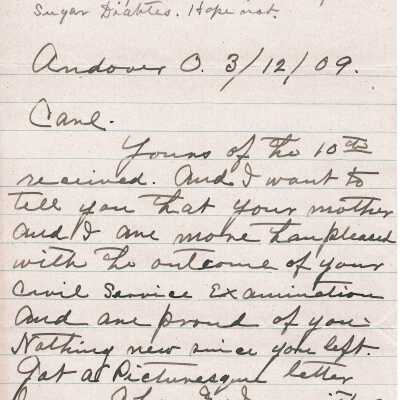 Sugar Diabetes. Hope not.
Andover O. 3/12/09.
Carl.
Yours of the 10th
received. And I want to
tell you that your mother
and I are more than pleased
with the outcome of your
Civil Service Examination
and are proud of you.
Nothing new since you left.
Got a Picturesque letter